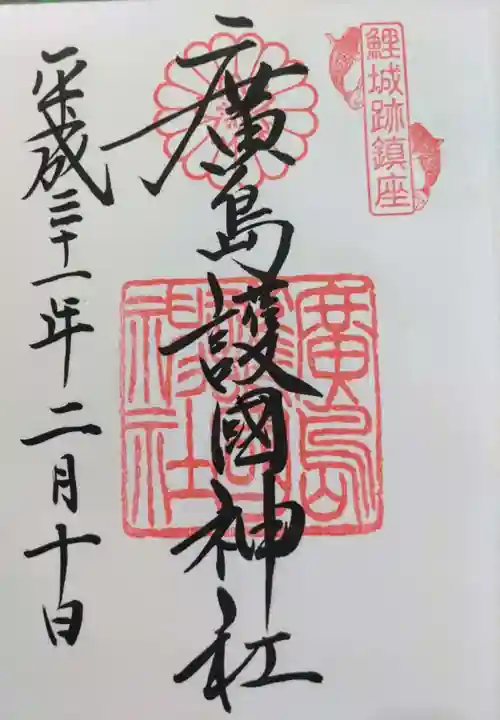 鯉城跡鎮座
廣島護國神社
廣島護國神社
平成三十一年二月十日